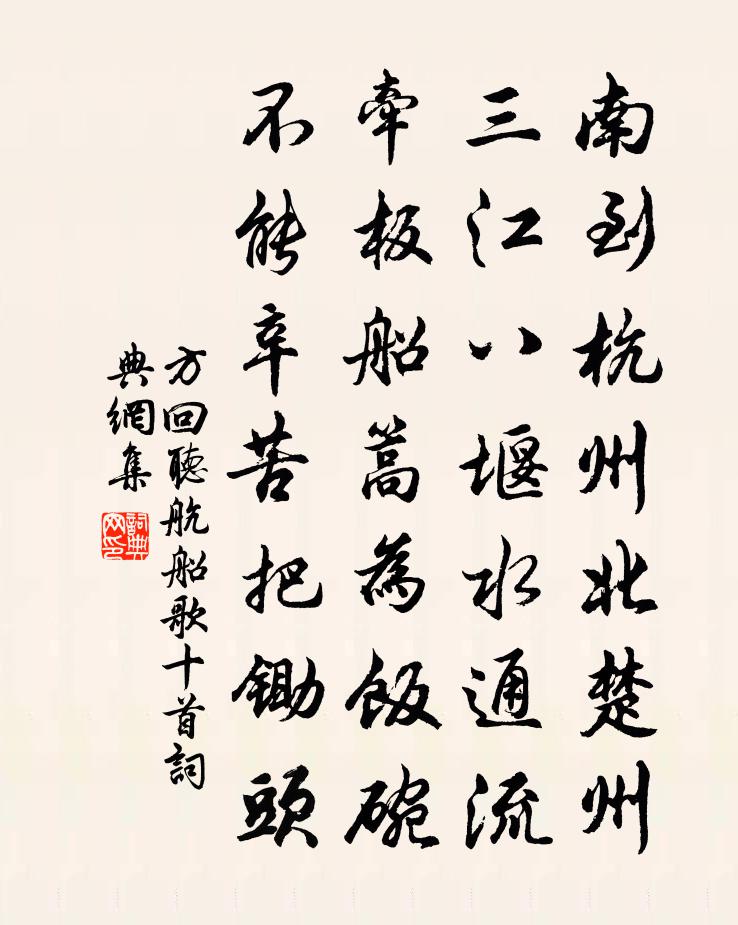 南到杭州北楚州
三江八堰水通流
牵板船篙為飯碗
不能辛苦把鋤頭
方回聽航船歌十首詞
典網集
詞典
网印